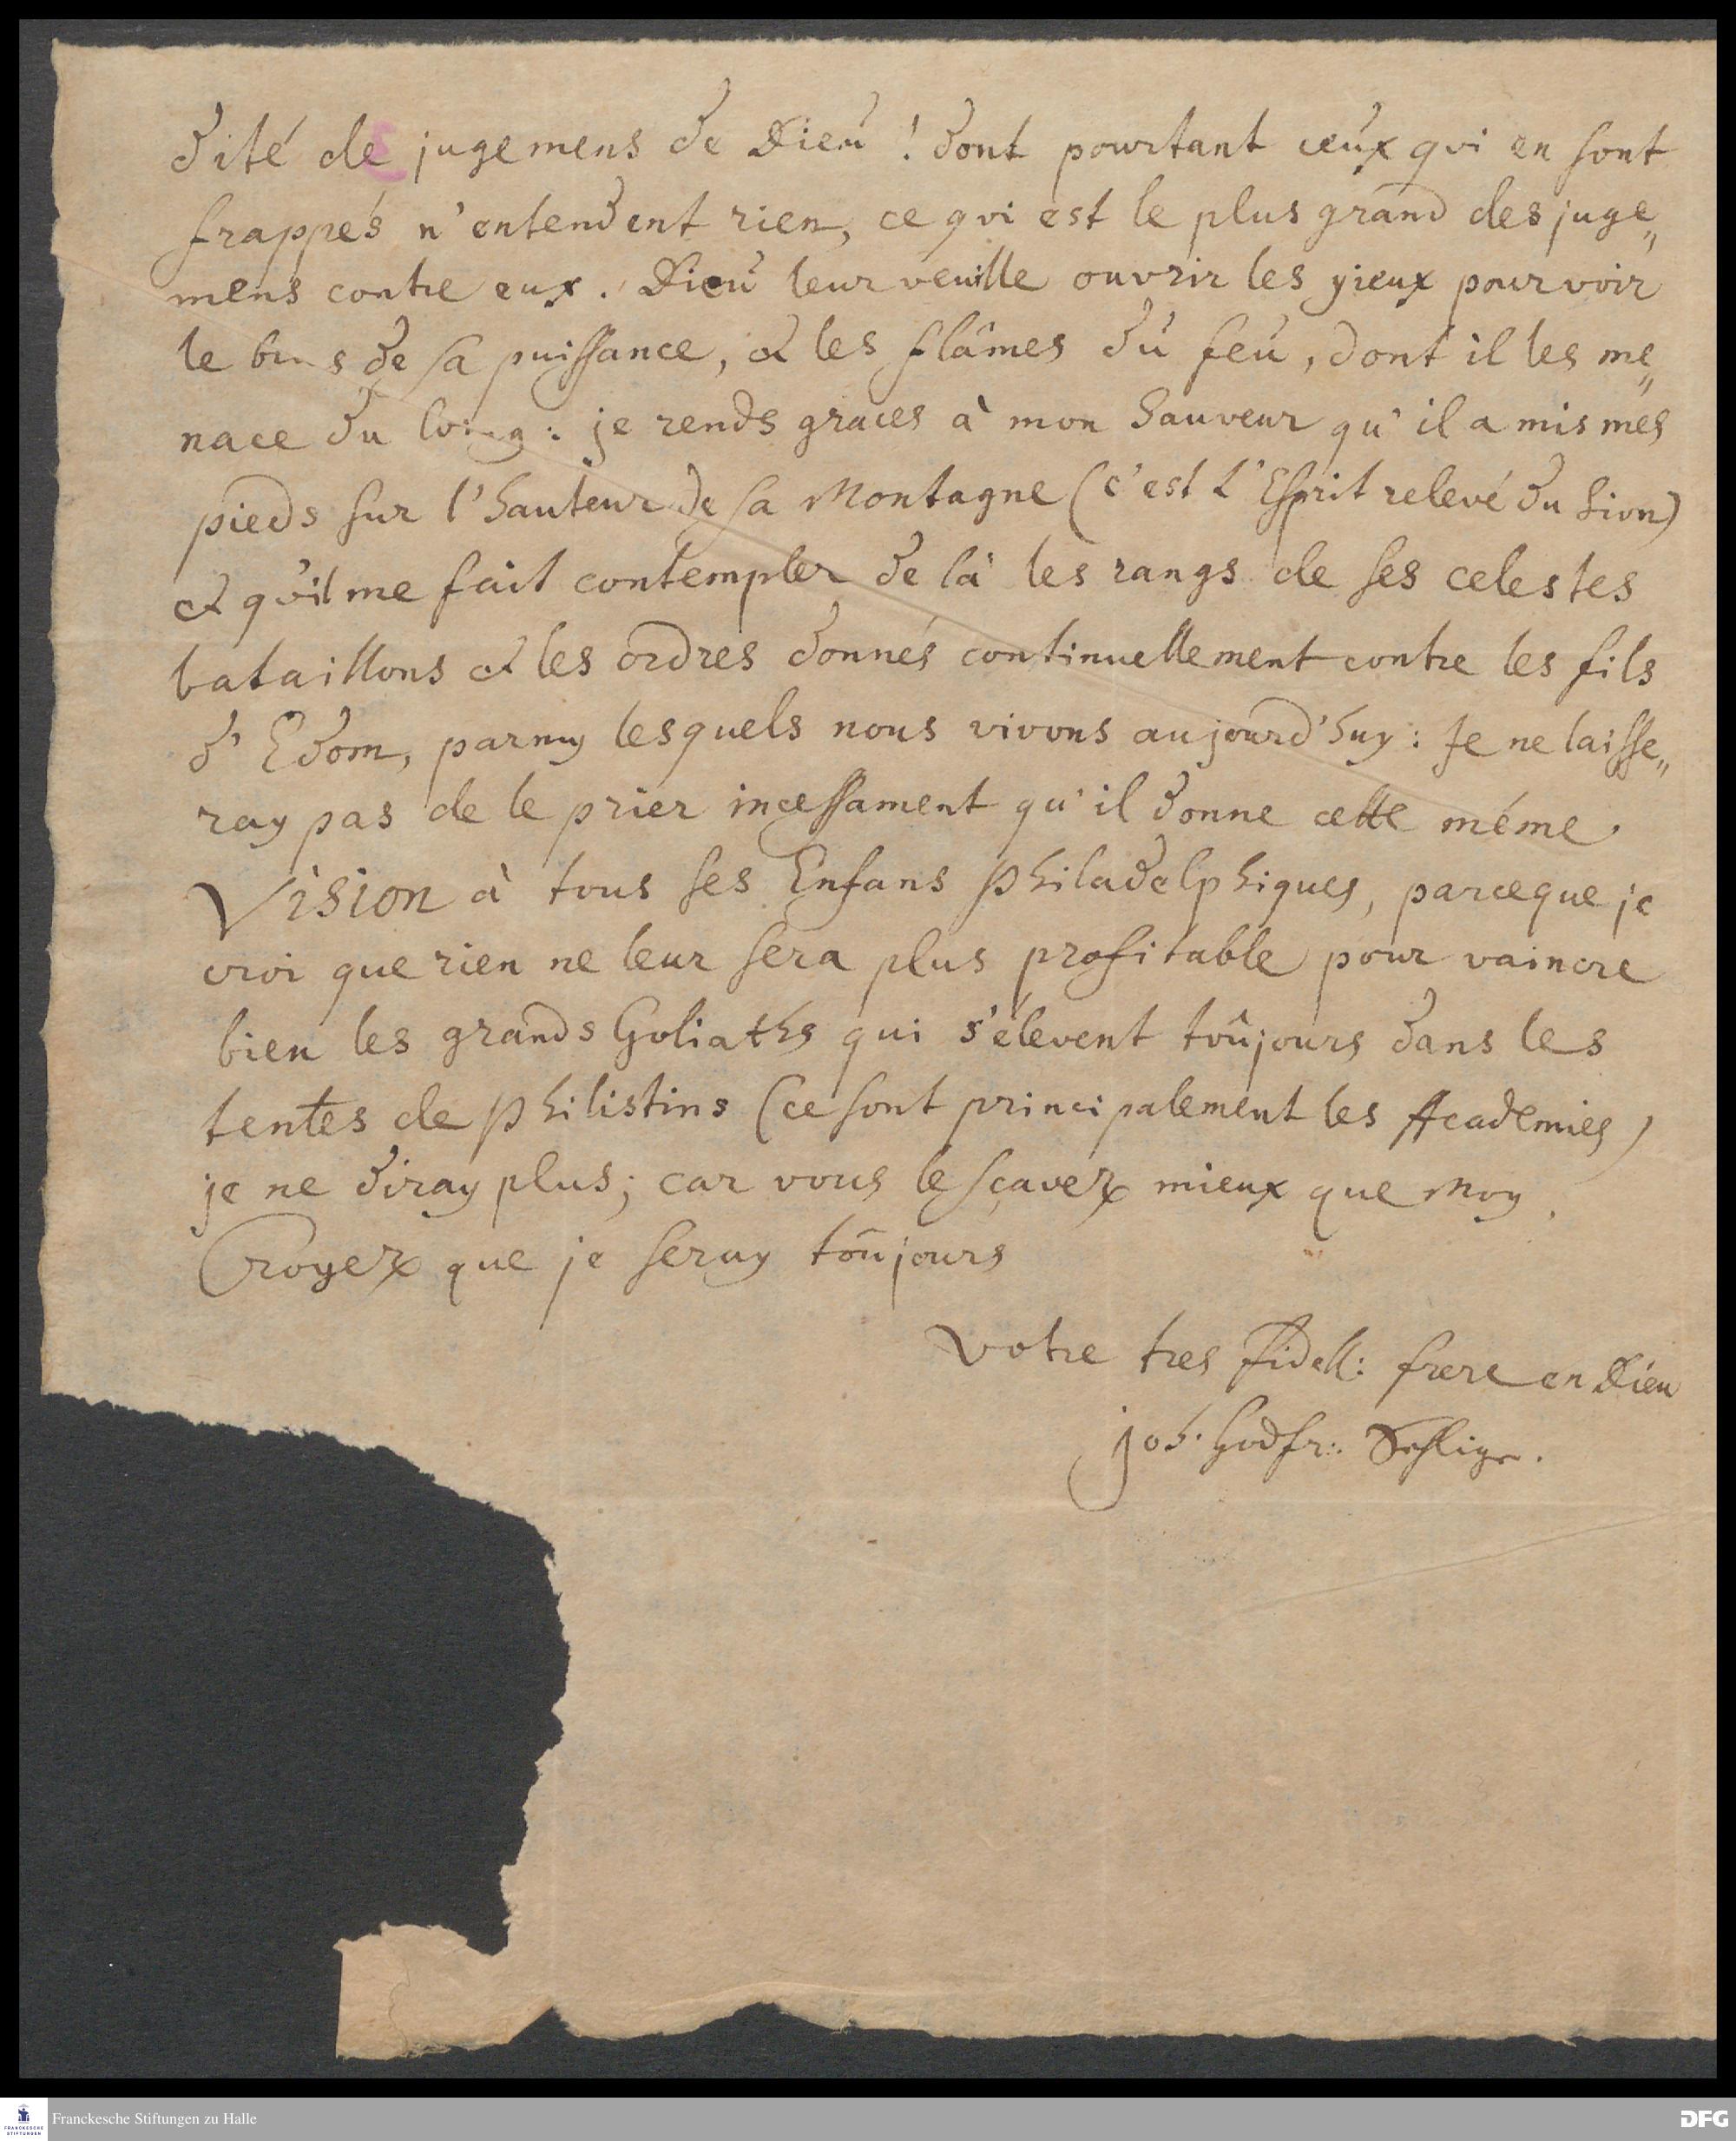 dité des jugemens de Dieu! dont pourtant ceux qvi en sont
frappés n'entendent rien, ce qvi est le plus grand des juge„
mens contre eux. Dieu leur veuille ouvrir les yieux pour voir
le bras de sa puissance, & les flâmes du feu, dont il les me„
nace du long: je rends graces à mon Sauveur qu'il a mis mes
pieds sur l'hauteur de sa Montagne (c'est l'Esprit relevé du Sion)
& qv'il me fait contempler de là les rangs de ses celestes
bataillons & les ordres donnés continuellement contre les fils
d'Edom, parmy lesquels nous vivons aujourd'huy: Je ne laisse„
ray pas de le prier incessament qu'il donne cette méme
Vision à tous ses Enfans Philadelphiques, parceque je
croi que rien ne leur sera plus profitable pour vaincre
bien les grands Goliaths qui s'élevent toûjours dans les
tentes de Philistins (ce sont principalement les Academies)
je ne diray plus; car vous le sçavez mieux que moy.
Croyez que je seray toûjours
Votre tres fidell: frere en Dieu
Joh. Godfr:
Franckesche Stiftungen zu Halle
FRANCKESCHE
STIFTUNGEN
DFG